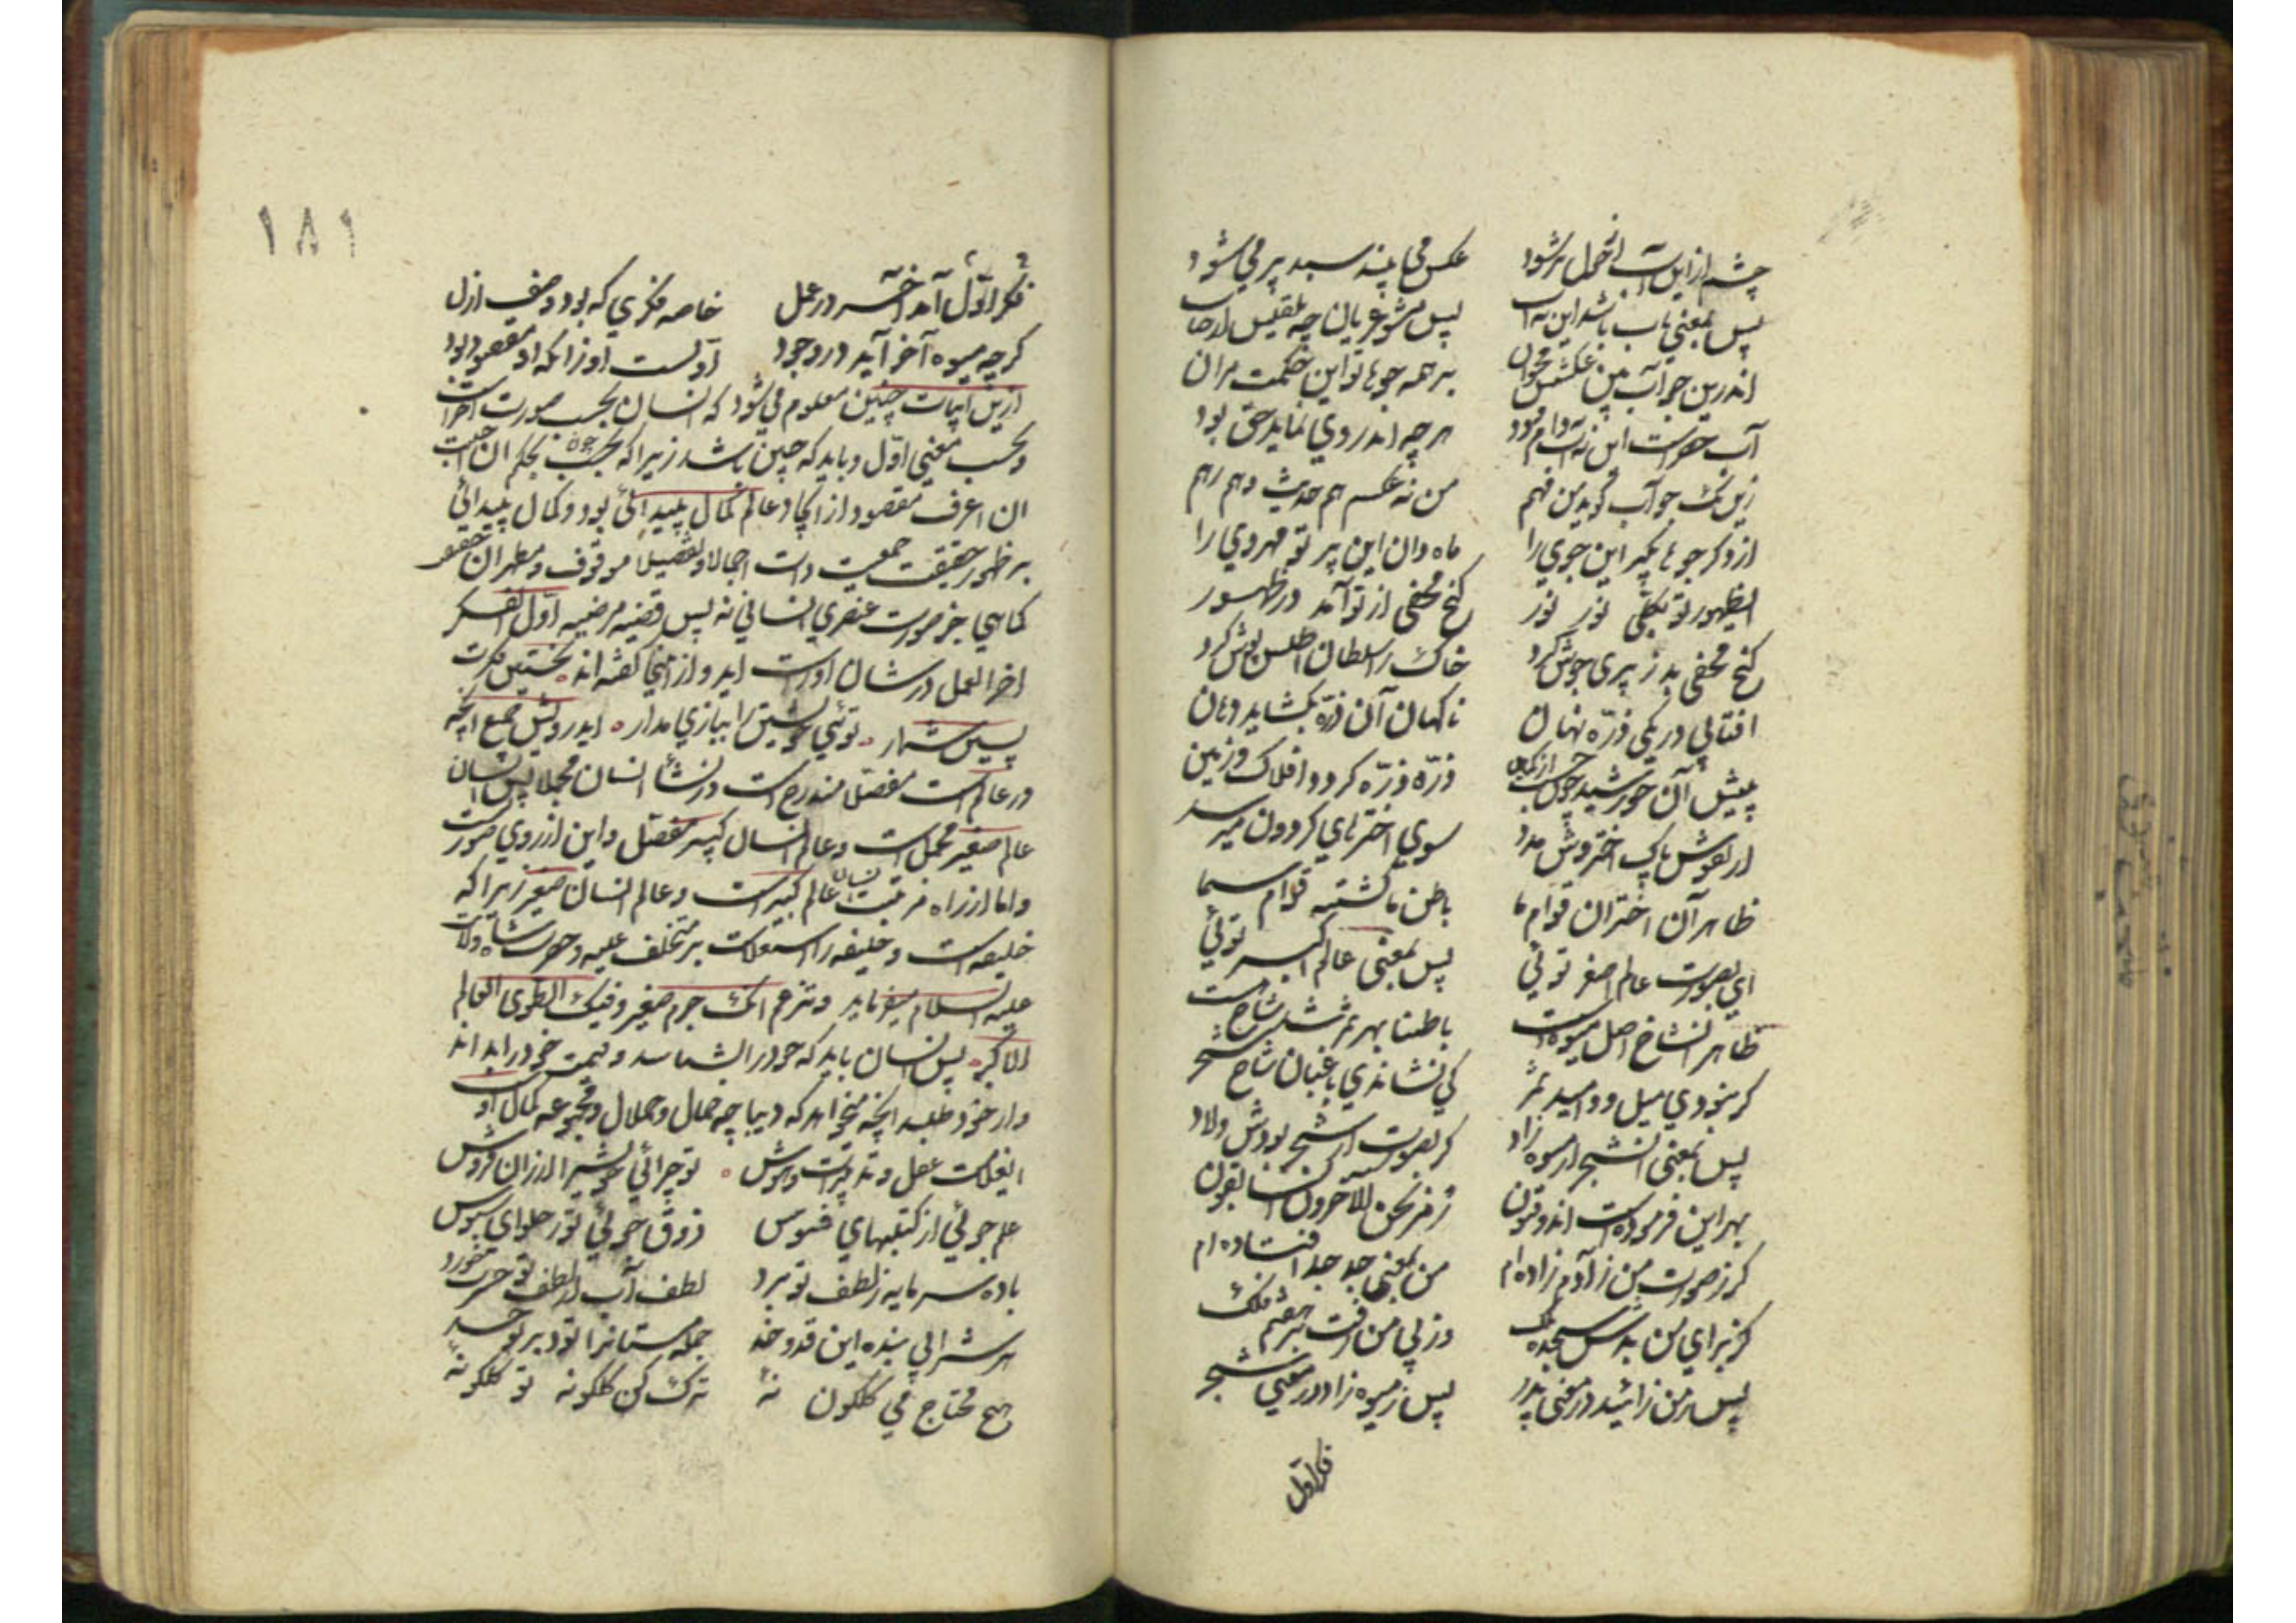 چشم ازین آب از حول پر شود عکس می بیند سبد پر می شود
پس بمعنی باب باشد این نه آب پس مشو عریان چو بلقیس از حباب
اندرین جو آب بین عکسش مخوان بر همه جوها تو این حکمت مران
آب خضرست این نه آب دام و دود هر چه اندر وی نماید حق بود
زین تک جو آب گوید من فهم من نه عکسم هم حدیث و هم رهم
از دگر جوها مگیر این جوی را ماه دان این پرتو مهروی را
ای ظهور تو بکلی نور نور گنج مخفی از تو آمد در ظهور
گنج مخفی بد ز پری جوش کرد خاک را سلطان اطلس پوش کرد
افتابی در یکی ذره نهان ناکهان آن ذره بکشاید دهان
ذره ذره کردد افلاک و زمین پیش آن خورشید چون جست از کمین
از نفوس پاک اختروش مدد سوی اخترهای کردون میرسد
ظاهر آن اختران قوام ما باطن ما کشته قوام سما
ای بصورت عالم اصغر توئی پس بمعنی عالم اکبر توئی
ظاهر آن شاخ اصل میوه است باطنا بهر ثمر شد شاخ هست
کر نبودی میل و امید ثمر کی نشاندی باغبان شاخ شجر
پس بمعنی آن شجر از میوه زاد کر بصورت از شجر بودش ولاد
بهر این فرموده است آن ذو فنون رمز نحن الآخرون السابقون
کر ز صورت من ز آدم زاده ام من بمعنی جد جد افتاده ام
کز برای من بدش سجده ملک وز پی من رفت بر هفتم فلک
پس ز من زائید در معنی پدر پس ز میوه زاد در معنی شجر
فکر اول
۱۸۱
فکر اول آمد آخر در عمل خاصه فکری که بود وصف ازل
کرچه میوه آخر آید در وجود اولست او زانکه او مقصود بود
ازین ابیات چنین معلوم می شود که انسان بحسب صورت آخر است
و بحسب معنی اول و باید که چنین باشد زیرا که بحسب چون بحکم ان احببت
ان اعرف مقصود از ایجاد عالم کمال پیدائی بود و کمال پیدائی
بر ظهور حقیقت جمعیت ذات اجمالا و تفصیلا موقوف و مظهر آن
کماهی جز صورت عنصری انسانی نه پس قضیه مرضیه اول الفکر
اخر العمل در شان او راست آید و از اینجا گفته اند نخستین فکرت
پسین شمار توئی خویشتن را ببازی مدار ایدرویش جمیع آنچه
در عالم است مفصلا مندرج است در نشأ انسان مجملا پس انسان
عالم صغیر مجمل است و عالم انسان کبیر مفصل و این از روی صورت
و اما از راه مرتبت انسان عالم کبیر است و عالم انسان صغیر زیرا که
خلیفه است و خلیفه را استعلاست بر متخلف علیه و حضرت شاه ولایت
علیه السلام میفرماید و تزعم انک جرم صغیر و فیک انطوی العالم
الاکبر پس انسان باید که خود را بشناسد و قیمت خود را بداند
و از خود طلبد آنچه میخواهد که دیباچه جمال و جلال و مجموعه کمال او
ای غلامت عقل و تدبیرست و هوش تو چرائی خویش را ارزان فروش
علم جوئی از کتبهای فسوس ذوق جوئی تو ز حلوای سبوس
باده سرمایه ز لطف تو برد لطف آب از لطف تو حسرت خورد
هر شرابی بنده این قد و خد جمله مستانرا بود بر تو حسد
هیچ محتاج می کلکون نهٔ ترک کن کلکونه تو کلکونهٔ